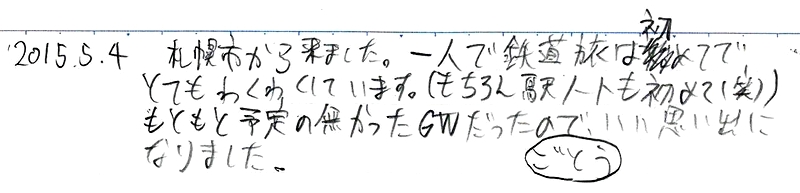 2015.5.4 札幌市から来ました。一人で鉄道旅は初めてで
とてもわくわくしています。(もちろん駅ノートも初めて(笑))
もともと予定の無かったGWだったので、いい思い出に
なりました。 ごとう